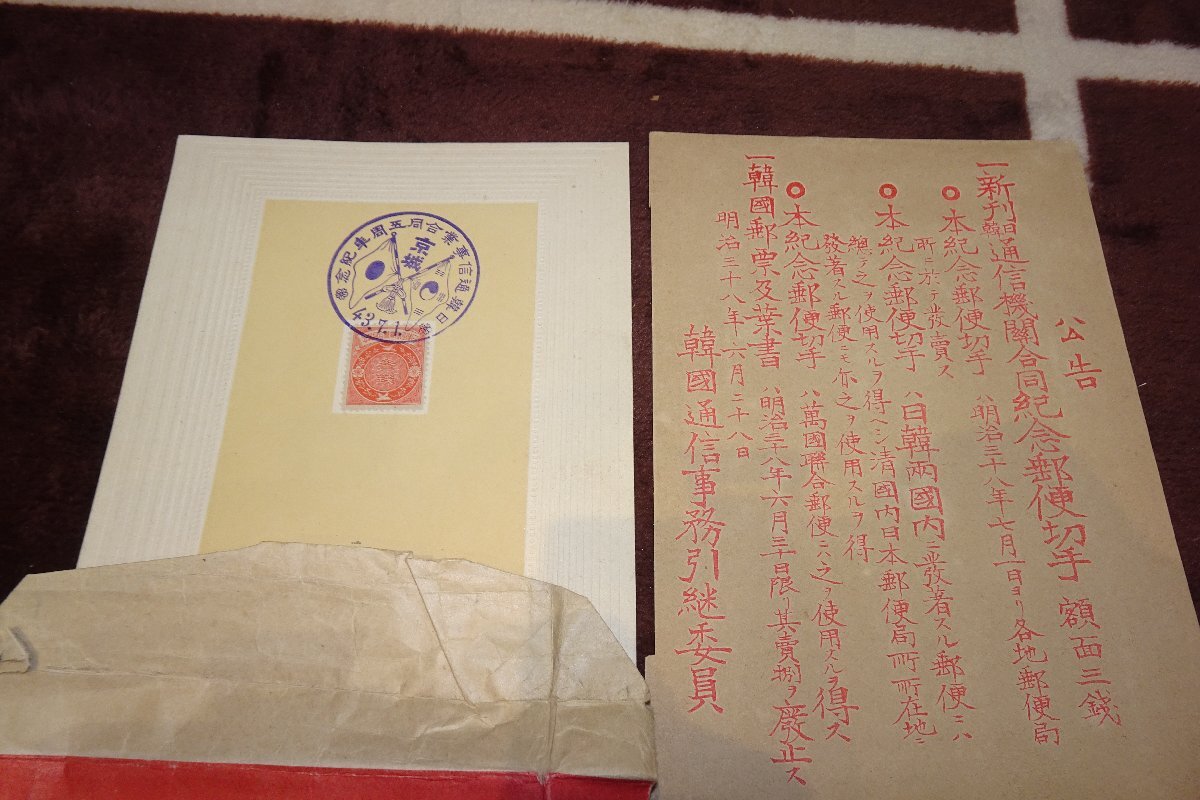 公告
一、新刊日韓通信機關合同紀念郵便切手 額面三錢
◎本紀念郵便切手ハ明治三十八年七月一日ヨリ各地郵便局
所ニ於テ發賣ス
◎本紀念郵便切手ハ日韓兩國內ニ發着スル郵便ニハ
總テ之ヲ使用スルヲ得ヘシ清國內日本郵便局所所在地ニ
發着スル郵便ニモ亦之ヲ使用スルヲ得
◎本紀念郵便切手ハ萬國聯合郵便ニハ之ヲ使用スルヲ得ス
一、韓國郵票及葉書ハ明治三十八年六月三十日限リ其賣捌ヲ廢止ス
明治三十八年六月二十八日
韓國通信事務引継委員
日韓通信事業合同五周年紀念
京城
43.7.1